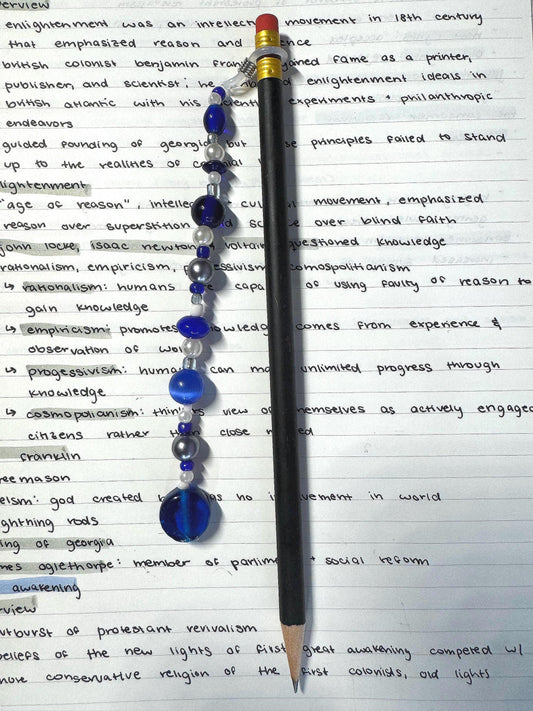 erview
enlightenment was an intellect movement in 18th century
that emphasized reason and ence
british colonist benjamin fran gained fame as a printer,
publisher, and scientist; he d enlightenment ideals in
british atlantic with his scienti experiments + philanthropic
endeavors
guided founding of georgia but se principles failed to stand
up to the realities of co ial l
lightenment
"age of reason", intellec cul movement, emphasized
reason over superstition d sc e over blind faith
john locke, isaac newton, voltair questioned knowledge
rationalism, empiricism, p essivism cosmospolitianism
↳ rationalism: humans e capa of using faulty of reason to
gain knowledge
↳ empiricism: promotes owledg comes from experience &
observation of wo
↳ progessivism: huma can ma unlimited progress through
knowledge
↳ cosmopolianism: thin rs view o hemselves as actively engaged
citizens rather th close m ed
franklin
reemason
eism: god created as no i vement in world
ghtning rods
ing of georgia
mes oglethorpe: member of parlim + social reform
awakening
rview
utburst of protestant revivalism
eliefs of the new lights of first great awakening competed w/
more conservative religion of the first colonists, old lights